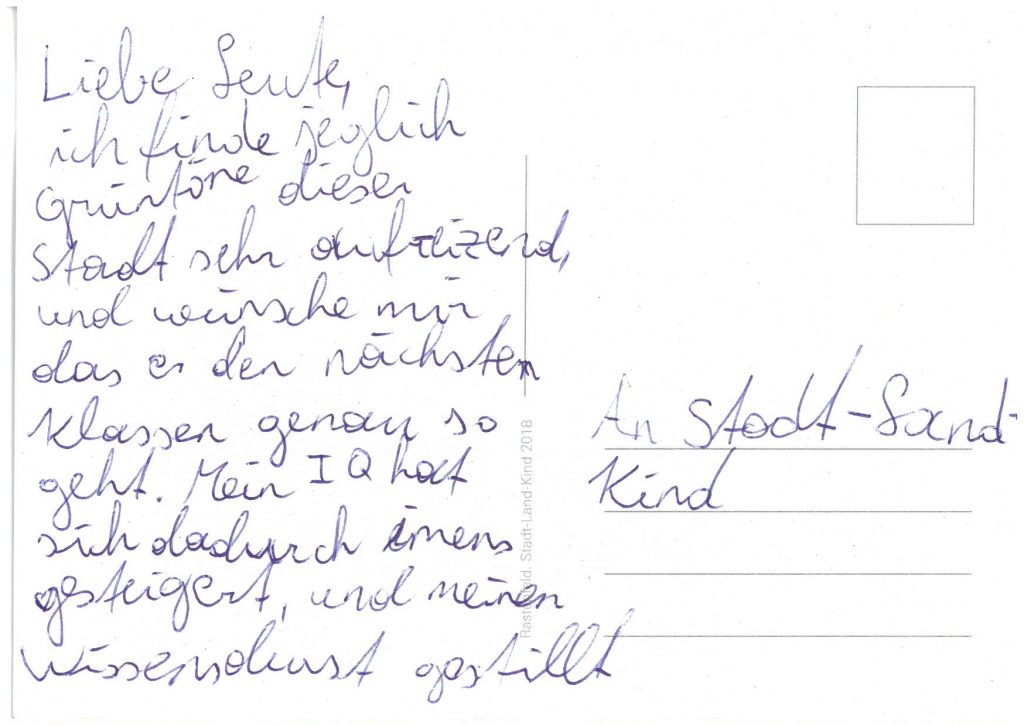 Liebe Leute,
ich finde jeglich
Grüntöne dieser
Stadt sehr aufreizend,
und wünsche mir
das es den nächsten
Klassen genau so
geht. Mein IQ hat
sich dadurch imens
gesteigert, und meinen
Wissensdurst gestillt
An Stadt-Land-
Kind
Stadt-Land-Kind 2018